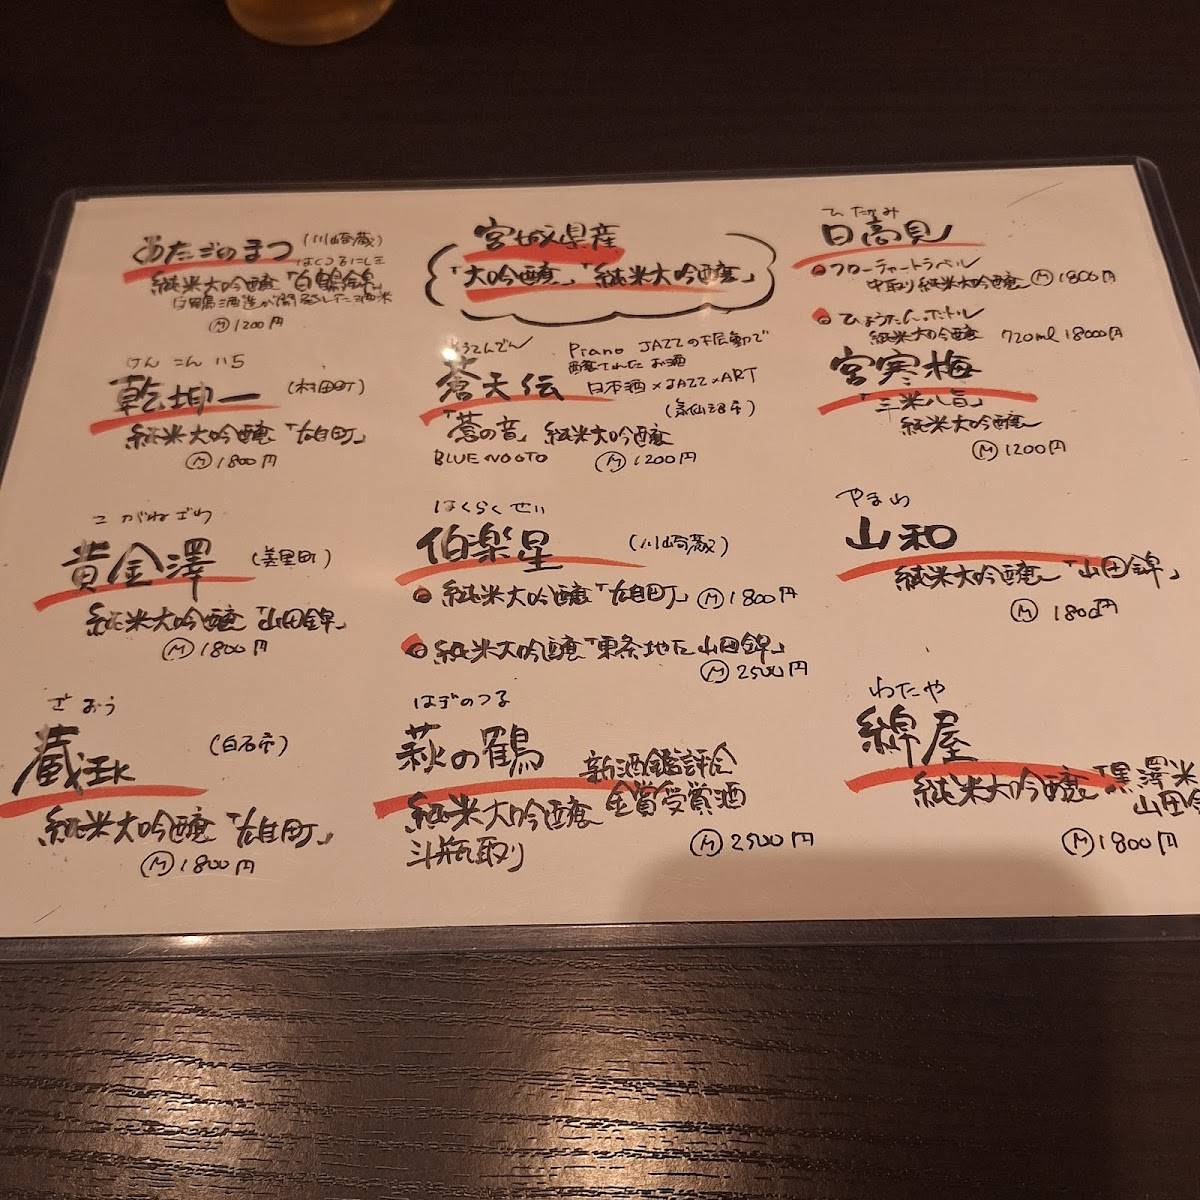 あたごのまつ (川崎蔵)
はくつるにしき
純米大吟醸「白鶴錦」
白鶴酒造が開発した酒米
Ⓜ1200円
けん こん いち
乾坤一 (村田町)
純米大吟醸「雄町」
Ⓜ1800円
こ がねざわ
黄金澤 (美里町)
純米大吟醸「山田錦」
Ⓜ1800円
ざ おう
蔵王 (白石市)
純米大吟醸「雄町」
Ⓜ1800円
宮城県産
「大吟醸」「純米大吟醸」
そうてんでん
蒼天伝
Piano JAZZの振動で
醸されたお酒
日本酒×JAZZ×ART
(気仙沼市)
「蒼の音」純米大吟醸
BLUE NOOTO Ⓜ1200円
はくらくせい
伯楽星 (川崎蔵)
純米大吟醸「雄町」Ⓜ1800円
純米大吟醸「東条地区山田錦」
Ⓜ2500円
はぎのつる
萩の鶴
新酒鑑評会
金賞受賞酒
純米大吟醸
斗瓶取り Ⓜ2500円
ひたかみ
日高見
フローチャートラベル
中取り純米大吟醸 Ⓜ1800円
ひょうたんボトル
純米大吟醸 720ml 18000円
宮寒梅
「三米八旨」
純米大吟醸
Ⓜ1200円
やまわ
山和
純米大吟醸「山田錦」
Ⓜ1800円
わたや
綿屋
純米大吟醸「黒澤米
山田錦
Ⓜ1800円